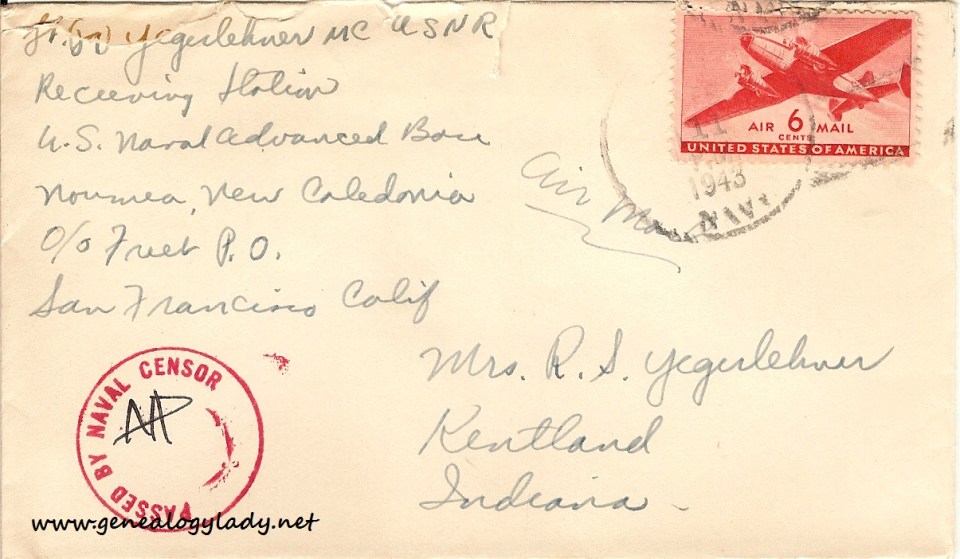 Yegerlehner MC USNR
Receiving Station
U.S. Naval Advanced Base
Noumea, New Caledonia
c/o Fleet P.O.
San Francisco Calif
Air Mail
AIR 6 MAIL
CENTS
UNITED STATES OF AMERICA
11
1943
NAVY
Mrs. R. S. Yegerlehner
Kentland
Indiana
PASSED BY NAVAL CENSOR
www.genealogylady.net